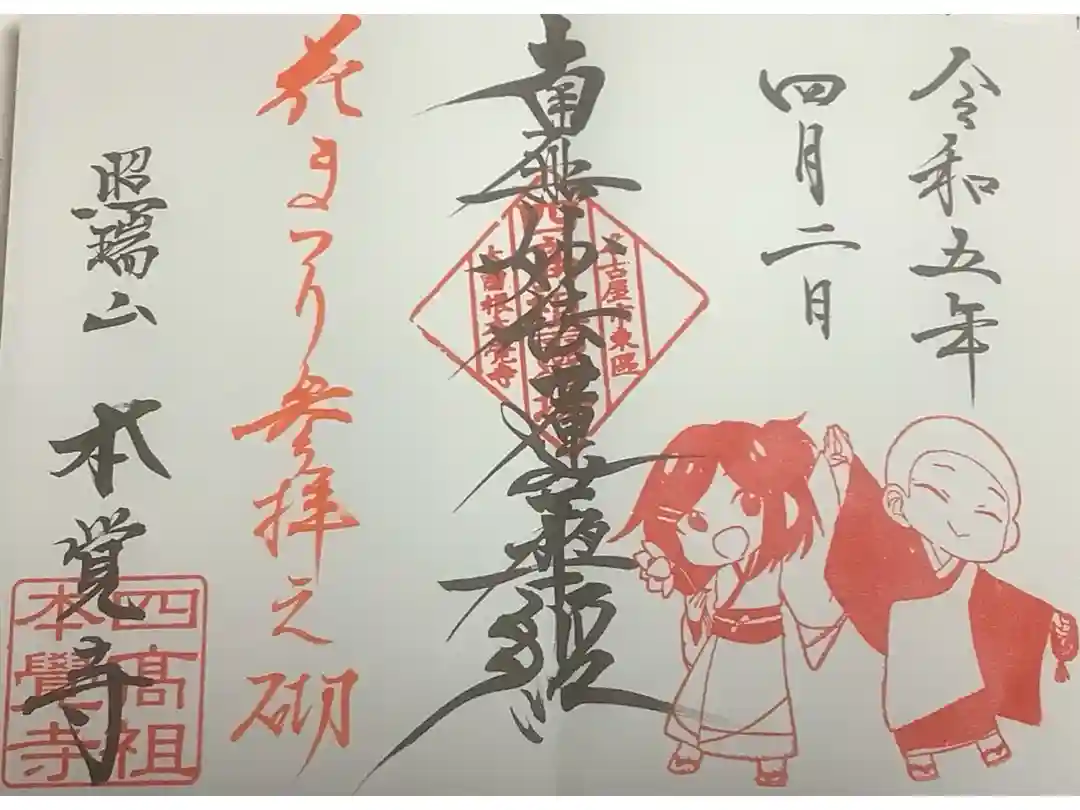 令和五年
四月二日
南無妙法蓮華經
名古屋市東区
大曽根本覚寺
花まつり参拝之砌
照瑞山 本覚寺
四高祖
本覺寺